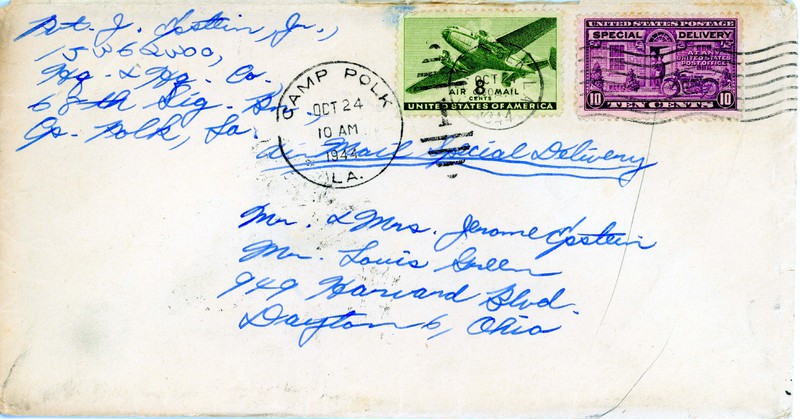 Pvt. J. Epstein, Jr.,
Hq. & Hq. Co.
68th Sig. Bn.,
Cp. Polk, La.
CAMP POLK
OCT 24
10 AM
1944
LA.
8
AIR MAIL
CENTS
UNITED STATES OF AMERICA
OCT
1944
UNITED STATES POSTAGE
SPECIAL DELIVERY
AT ANY
UNITED STATES
POST OFFICE
10 TEN CENTS 10
Air Mail Special Delivery
Mr. & Mrs. Jerome Epstein
Mr. Louis Green
949 Harvard Blvd.
Dayton 6, Ohio